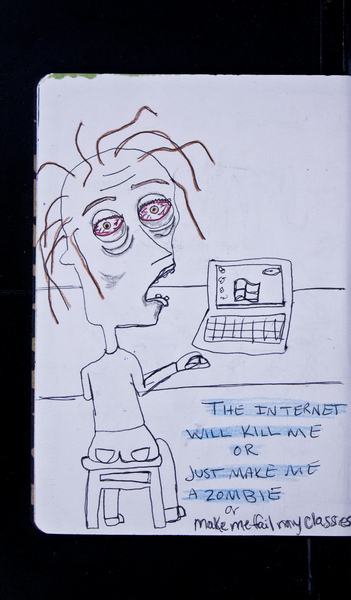 THE INTERNET
WILL KILL ME
OR
JUST MAKE ME
A ZOMBIE
or
make me fail my classes